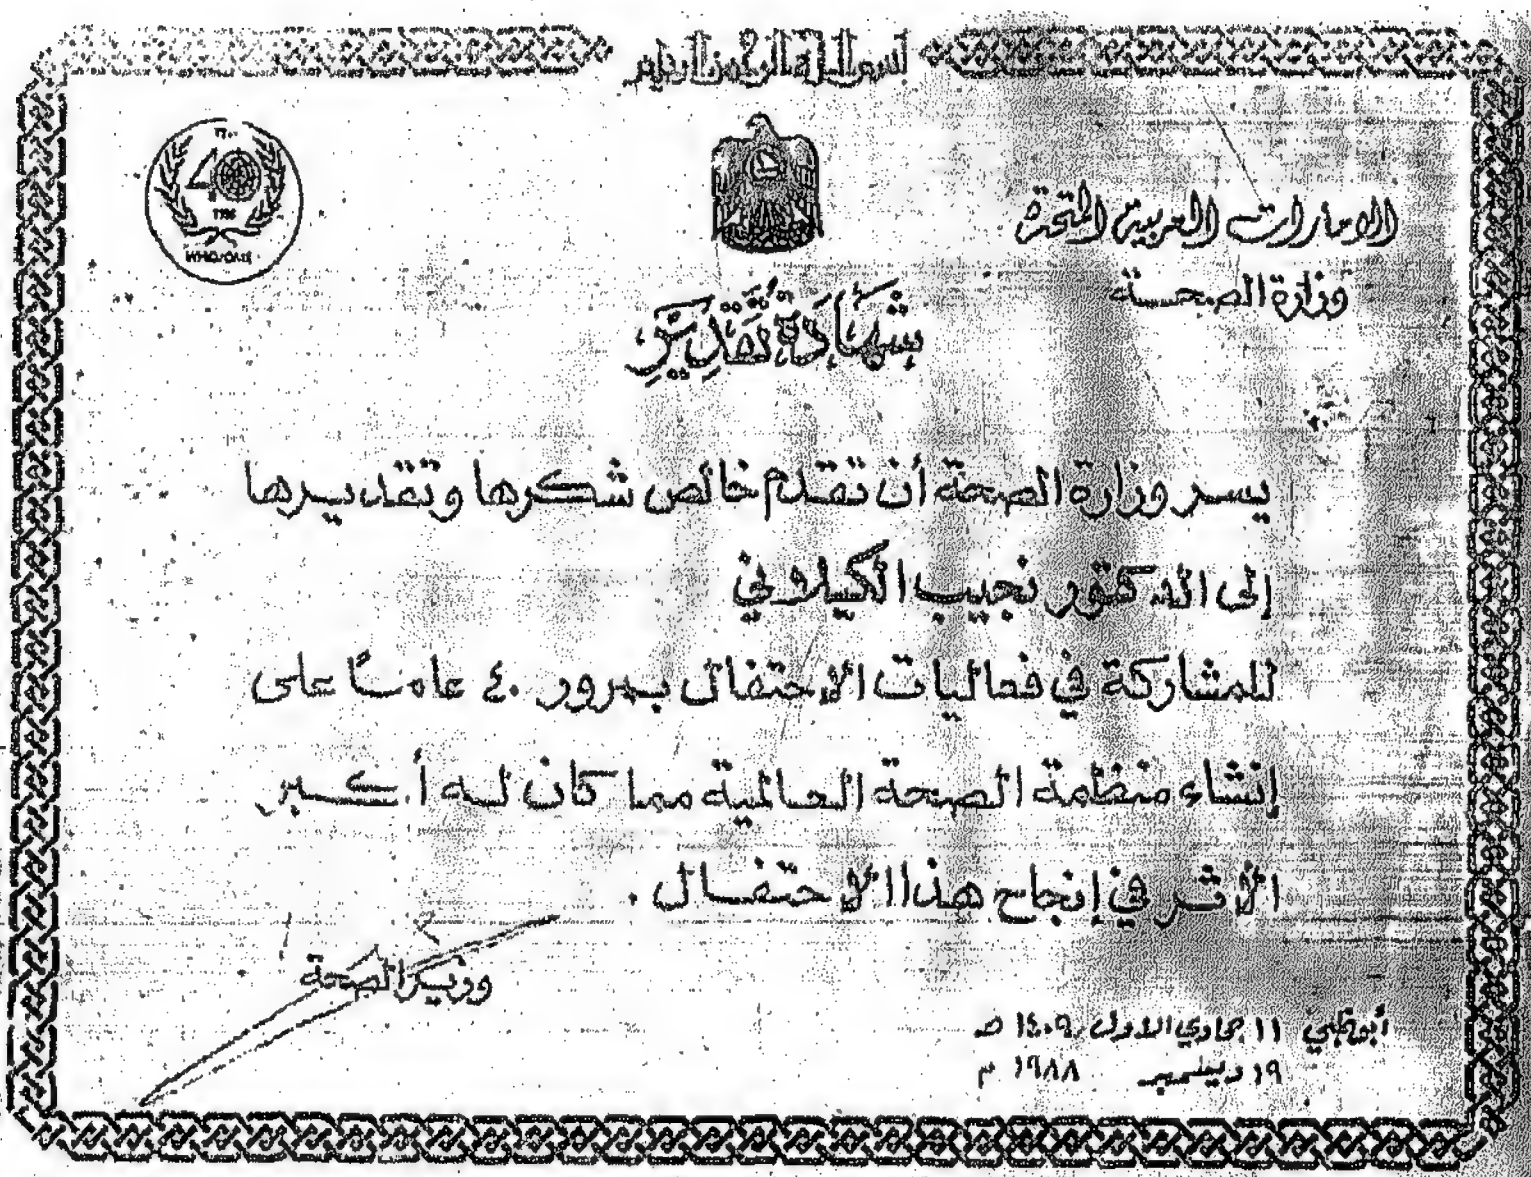 بسم الله الرحمن الرحيم
الامارات العربية المتحدة
وزارة الصحة
WHO/OMS
شَهَادَة تَقْدِير
يسر وزارة الصحة أن تقدم خالص شكرها وتقديرها
إلى الدكتور نجيب الكيلاني
للمشاركة في فعاليات الاحتفال بمرور ٤٠ عامًا على
إنشاء منظمة الصحة العالمية مما كان له أكبر
الأثر في إنجاح هذا الاحتفال .
وزير الصحة
أبوظبي ١١ جمادي الاول ١٤٠٩ هـ
١٩ ديسمبر ١٩٨٨ م